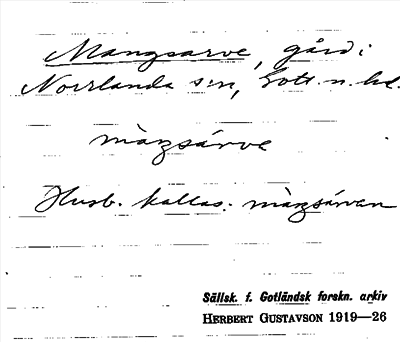 Mangsarve, gård i
Norrlanda sn, Gotl. n. hd.
màŋsárve
Husb. kallas: màŋsárvan
Sällsk. f. Gotländsk forskn. arkiv
HERBERT GUSTAVSON 1919—26